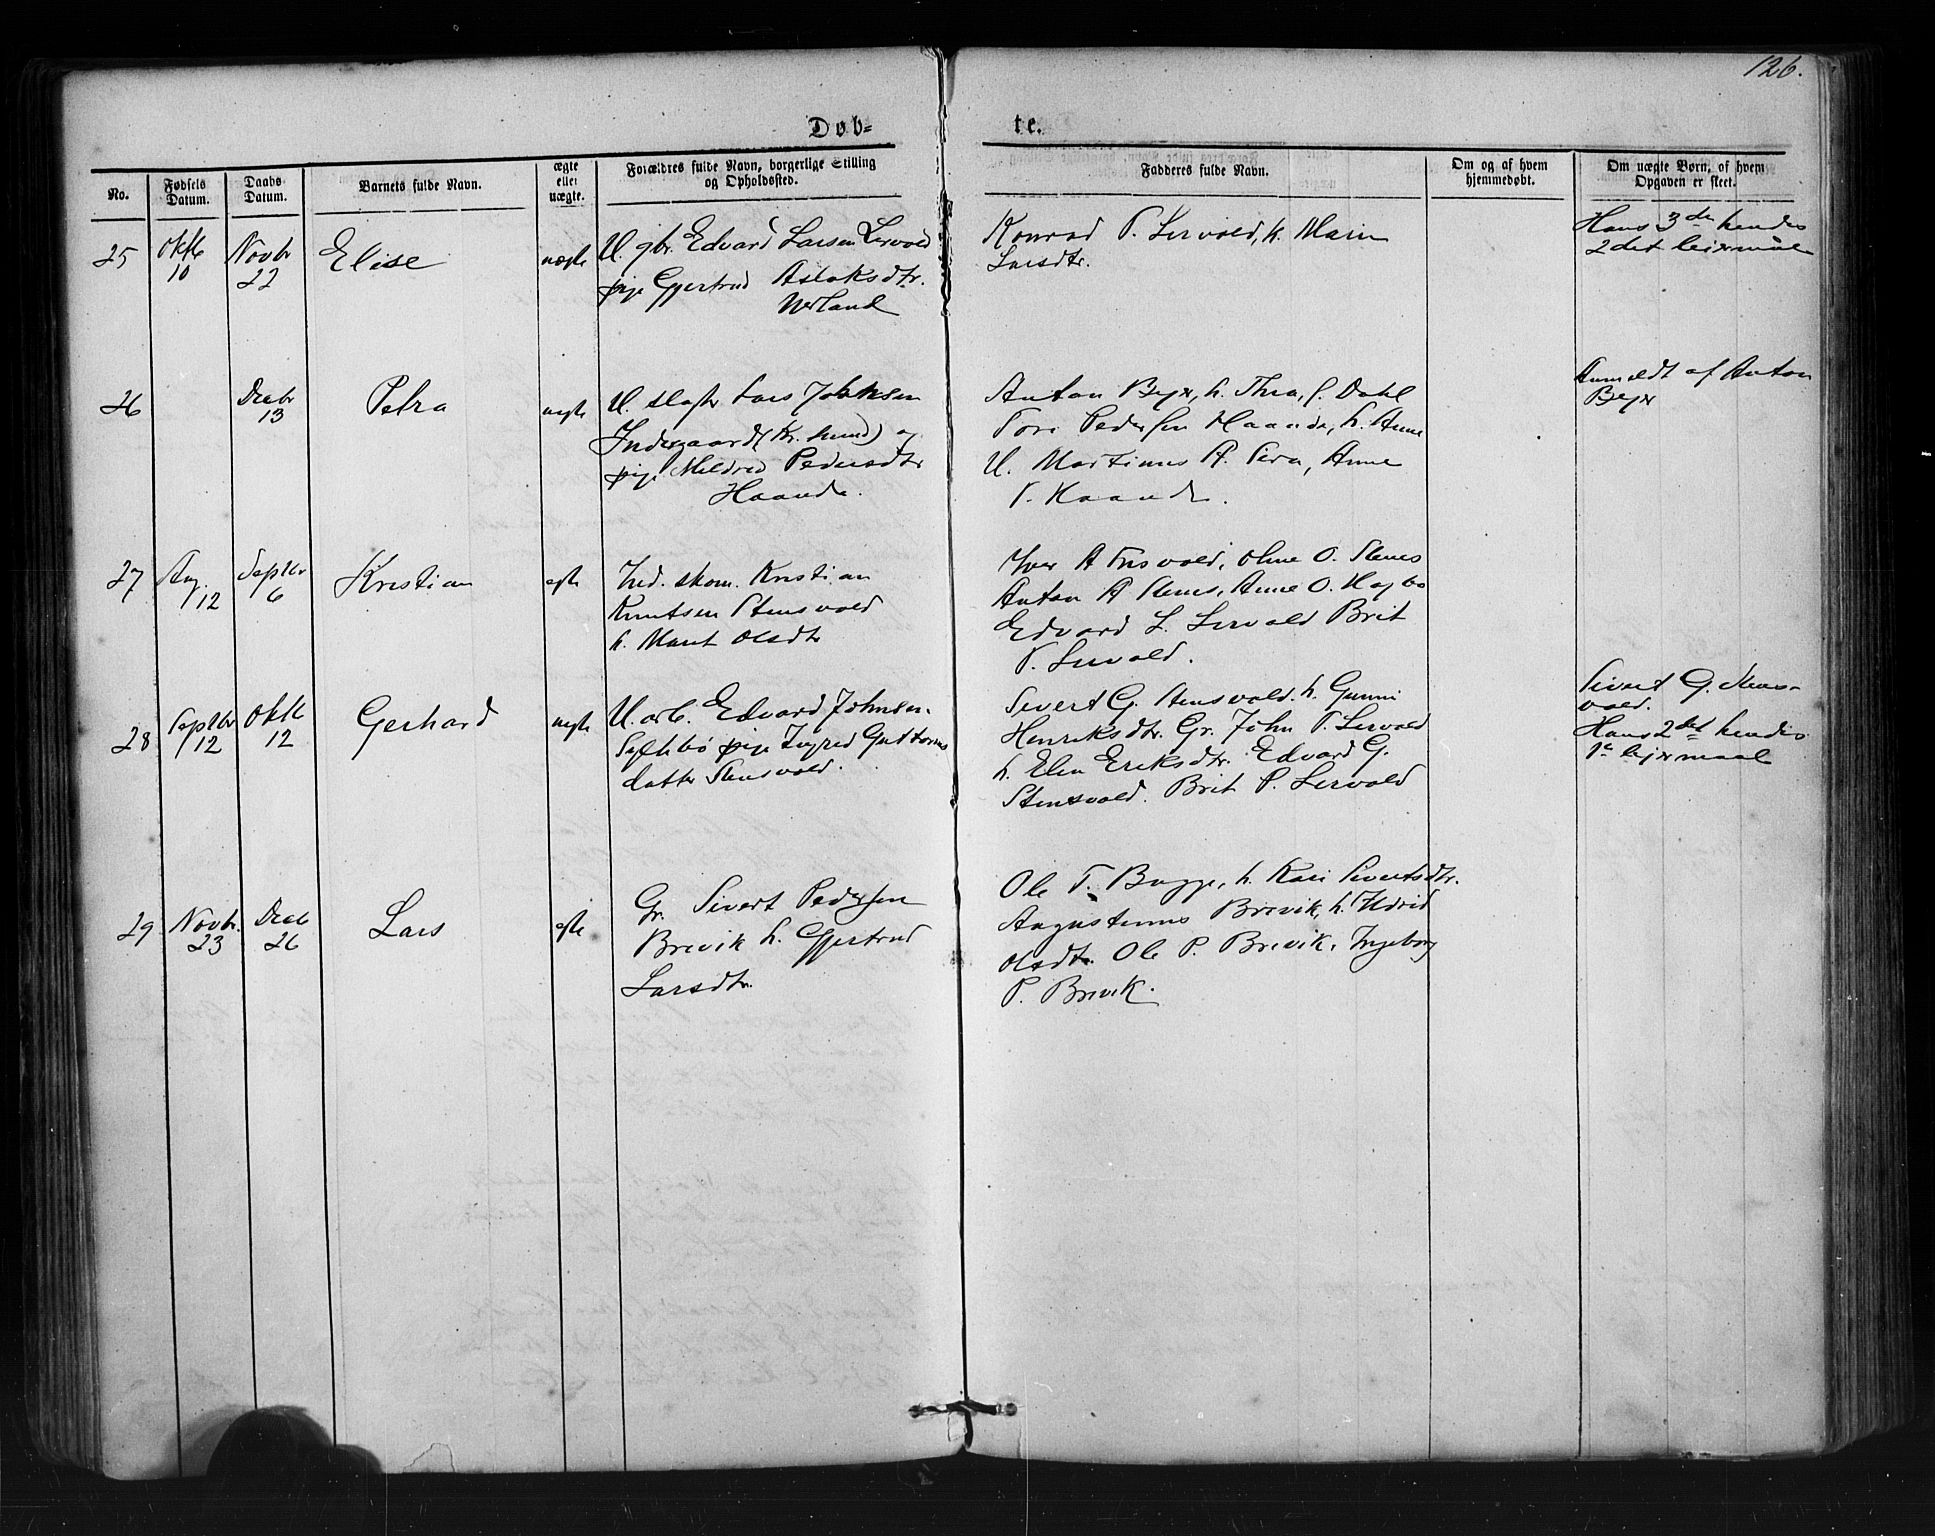 126.
Døb=
te.
No.
Fødsels Datum.
Daabs Datum.
Barnets fulde Navn.
ægte eller uægte.
Forældres fulde Navn, borgerlige Stilling
og Opholdssted.
Fadderes fulde Navn.
Om og af hvem
hjemmedøbt.
Om uægte Børn, af hvem
Opgaven er skeet.
25
Oktb 10
Novbr 22
Elise
uægte
U. gbr. Edvard Larsen Lervold
pige Gjertrud Aslaksdtr.
Nerland
Konrad P. Lervold, k. Marie
Larsdtr.
Hans 3die hendes
2det leiermål
26
Decbr 13
Petra
uegte
U. Lars Johnsen
Indergaard (Kr. sund) og
pige Mildrid Pedersdtr
Haande.
Anton Bejer, h. Thea, f. Dahl
Tore Pedersen Haande, h. Anne
U. Martinus A. Anne
P. Haande.
Anmeldt af Anton
Bejer
27
Aug. 12
Septbr 6
Kristian
egte
Ind. skom. Kristian
Knutsen Stensvold
h. Marit Olsdtr
Iver A O. Stenes
Anton A Stenes, Anne O.
Edvard L. Lervold Brit
P. Lervold.
28
Septbr 12
Oktb 12
Gerhard
uegte
U. arb. Edvard Johnsen
Syltebø pige Ingrid Guttorms
datter Stensvold.
Sivert G. Stensvold. h. Gunni
Henriksdtr. Gr. John P. Lervold
h. Elen Eriksdtr. Edvard G.
Stensvold. Brit P. Lervold
Sivert G. Stens-
vold.
Hans 2det hendes
1e lejermaal
29
Novbr. 23
Decb 26
Lars
egte
Gr. Sivert Pedersen
Brevik h. Gjertrud
Larsdtr.
Ole T. Bugge, h. Kari Sivertsdtr.
Augustinus Brevik, h. Ildrid
Olsdtr. Ole P. Brevik, Ingeborg
P. Brevik.